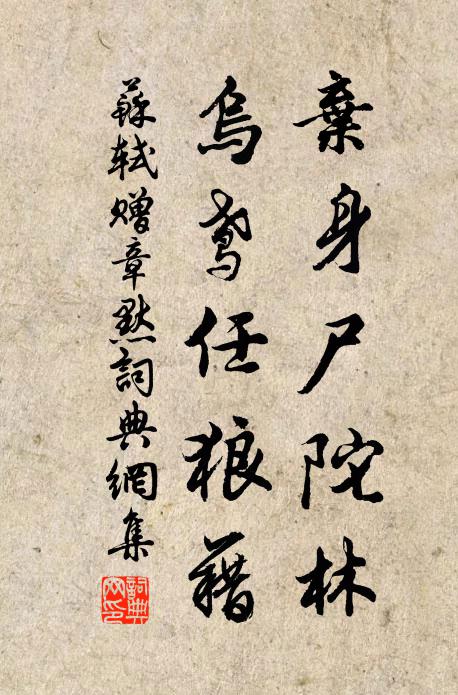 棄身尸陀林
烏鳶任狼藉
蘇軾贈章默詞典網集
詞典网印